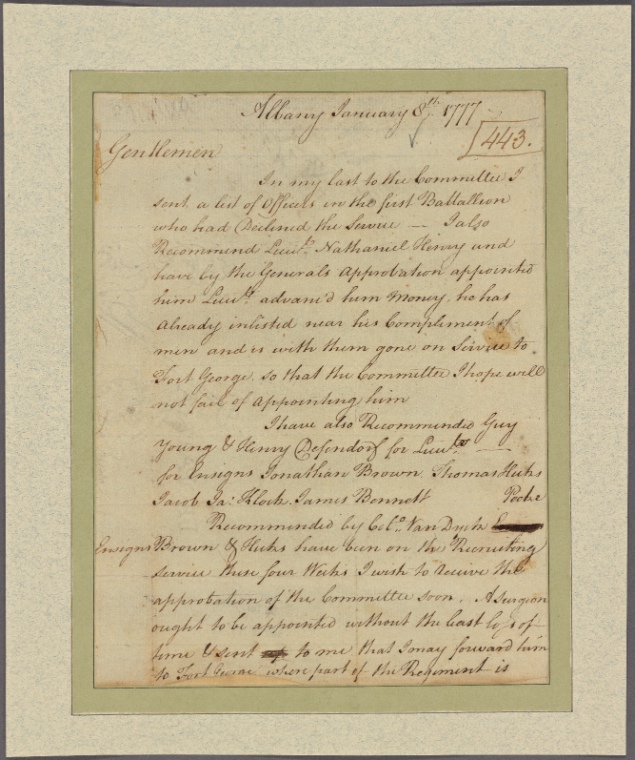 Albany January 8th. 1777
443.
Gentlemen
In my last to the Committee I
sent a list of Officers in the first Battallion
who had Declined the Service — I also
Recommend Lieut. Nathaniel Henry and
have by the Generals Approbation appointed
him Lieut. advanc'd him Money, he has
Already inlisted near his Compliment of
men and is with them gone on Service to
Fort George, so that the Committee I hope will
not fail of appointing him
I have also Recommended Guy
Young & Henry Defendorf for Lieuts. —
for Ensigns Jonathan Brown, Thomas Hicks
Jacob Ja: Klock. James Bennett
Recommended by Colo. Van Dyck
Ensigns Brown & Hicks have been on the Recruiting
Service these four Weeks I wish to receive the
approbation of the Committee soon. A Surgeon
ought to be appointed without the least loss of
time & sent to me that I may forward him
to Fort George where part of the Regiment is